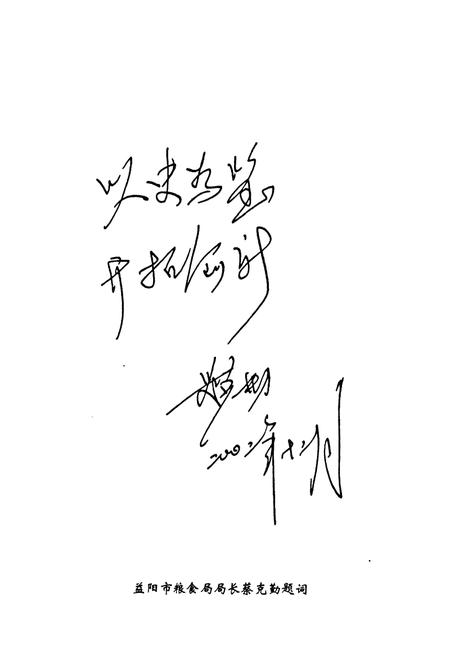 以史为鉴
开拓创新
蔡克勤
二00二年十二月
益阳市粮食局局长蔡克勤题词